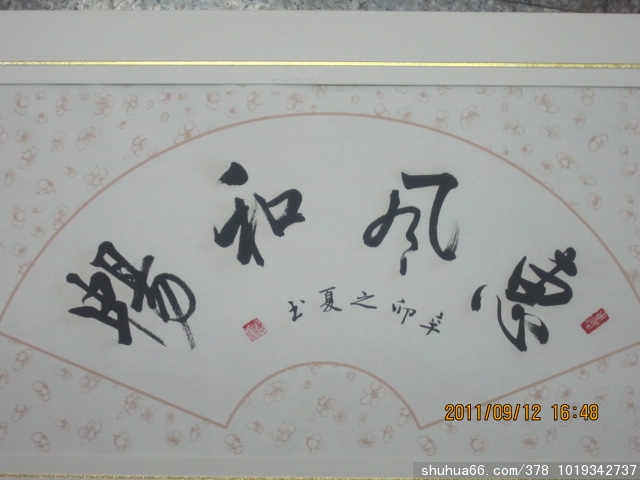 惠风和暢
辛卯之夏书
2011/09/12 16:48
shuhua66.com/378 1019342737